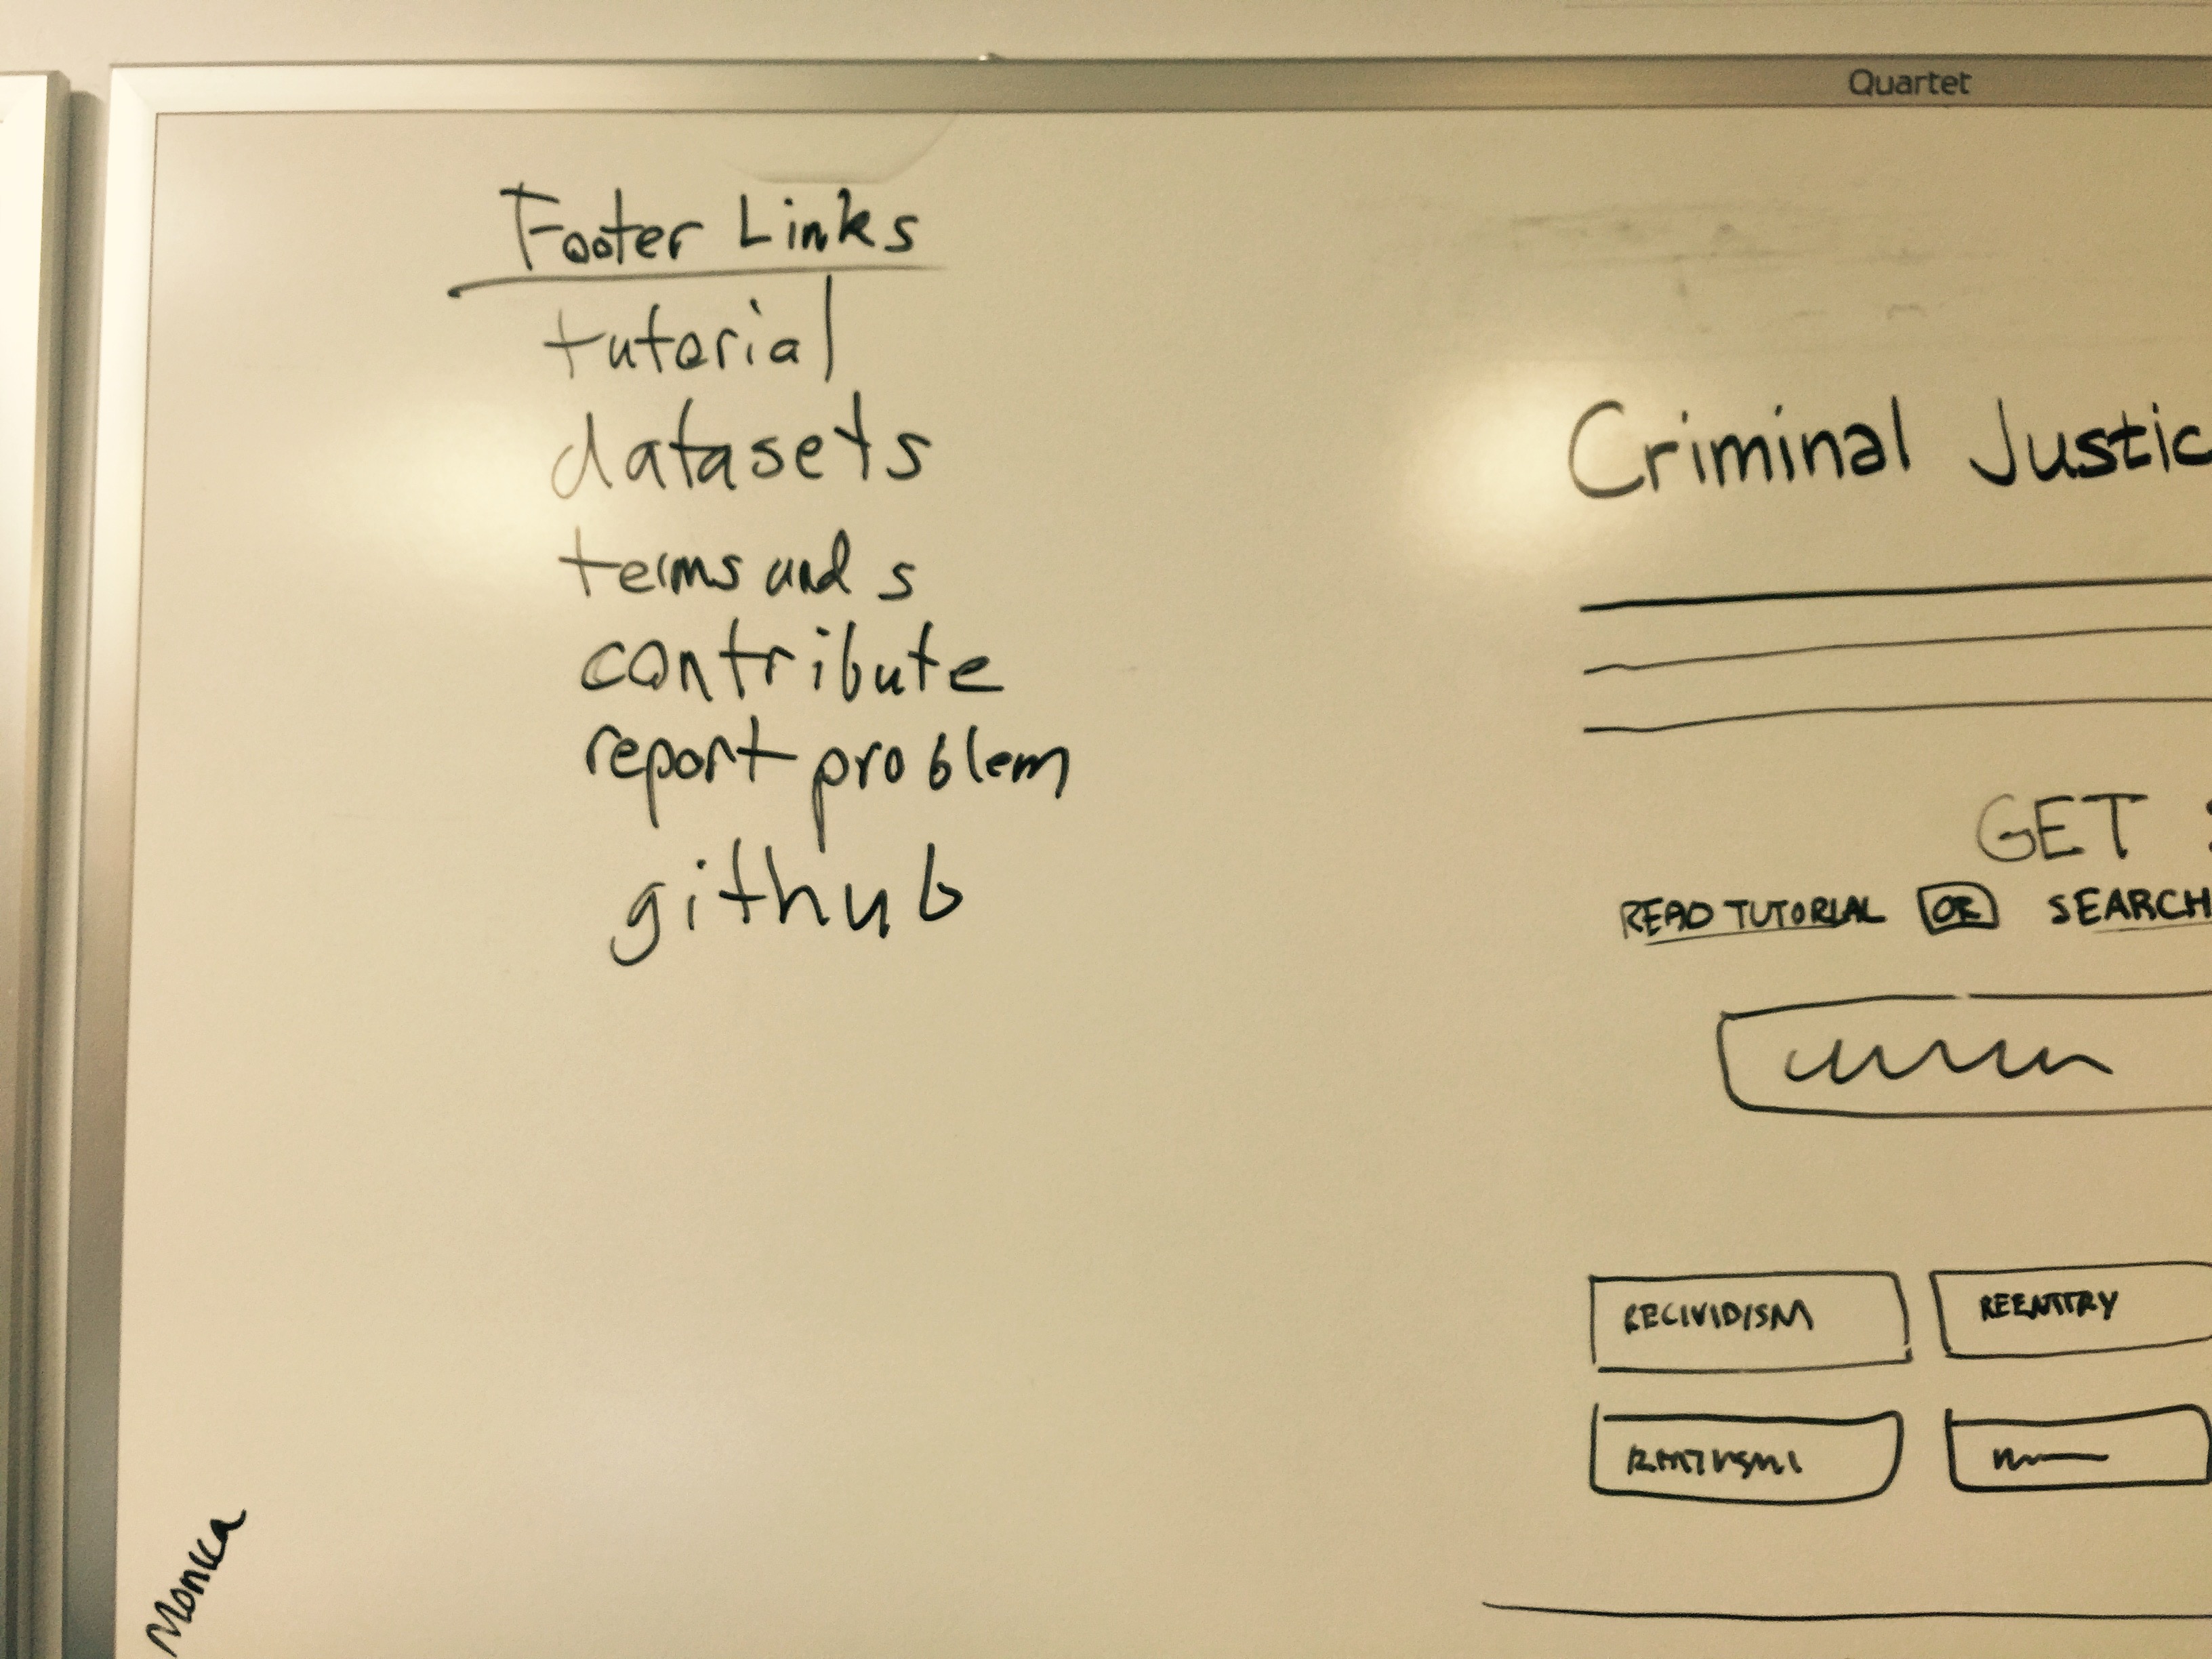 Quartet
Footer Links
tutorial
datasets
terms and s
contribute
report problem
github
Criminal Justic
GET
READ TUTORIAL OR SEARCH
RECIVIDISM
REENTRY
Monica